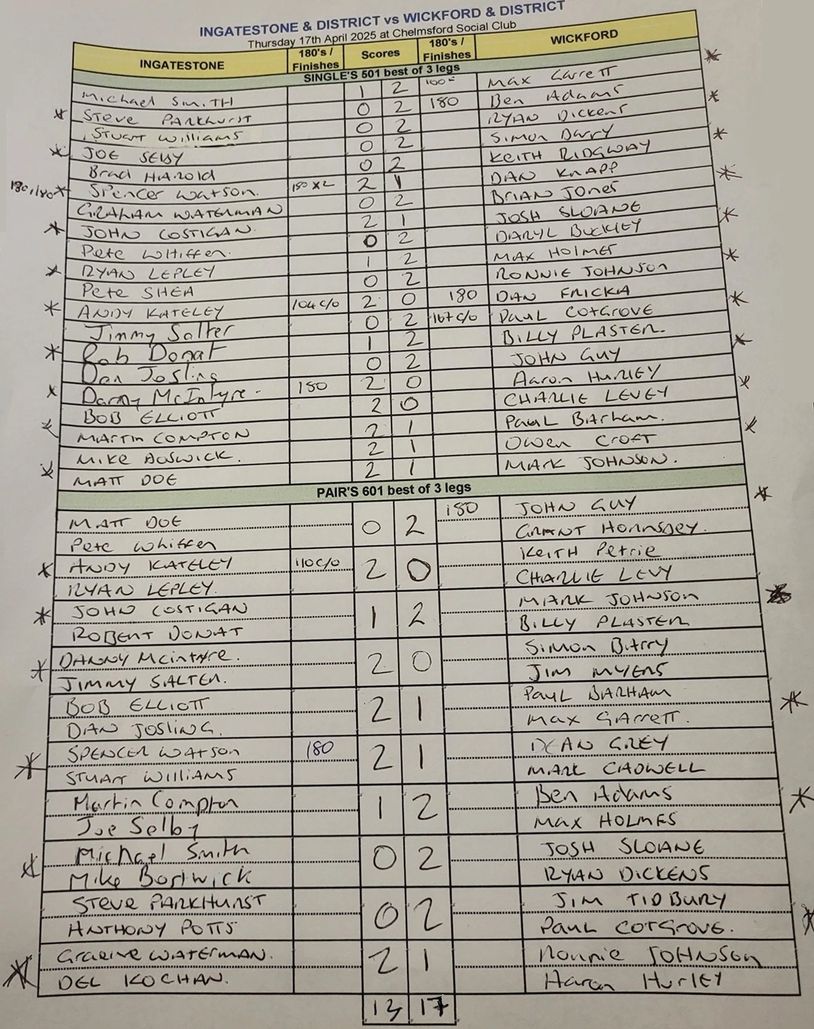 INGATESTONE & DISTRICT vs WICKFORD & DISTRICT
Thursday 17th April 2025 at Chelmsford Social Club
INGATESTONE 180's / Finishes Scores 180's / Finishes WICKFORD
SINGLE'S 501 best of 3 legs
Michael SmiTH 1 2 Max Garrett
STEVE PARKHURST 0 2 180 Ben Adams
STUART WILLIAMS 0 2 RYAN DICKENS
JOE SELBY 0 2 SIMON BARRY
Brad HAROLD 0 2 KEITH RIDGWAY
180, 180 SPENCER WATSON. 180 x2 2 1 DAN KNAPP
GRAHAM WATERMAN 0 2 BRIAN JONES
JOHN COSTIGAN. 2 1 JOSH SLOANE
Pete WHIFFEN. 0 2 DARYL BUCKLEY
RYAN LEPLEY 1 2 MAX HOLMES
Pete SHEA 0 2 RONNIE JOHNSON
ANDY KATELEY 104 c/o 2 0 180 DAN FRICKA
Jimmy Salter 0 2 167 c/o Paul COTGROVE
Rob Donat 1 2 BILLY PLASTER.
Dan Josling 0 2 JOHN GUY
Danny McIntyre. 180 2 0 Aaron HURLEY
BOB ELLIOTT 2 0 CHARLIE LEVEY
MARTIN COMPTON 2 1 Paul Barham.
MIKE BOSWICK. 2 1 OWEN CROFT
MATT DOE 2 1 MARK JOHNSON.
PAIR'S 601 best of 3 legs
MATT DOE 0 2 180 JOHN GUY
Pete Whiffen GRANT HORNSBEY.
ANDY KATELEY 110 c/o 2 0 KEITH Petrie
RYAN LEPLEY. CHARLIE LEVY
JOHN COSTIGAN 1 2 MARK JOHNSON
ROBERT DONAT BILLY PLASTER
DANNY McIntyre. 2 0 SIMON BARRY
JIMMY SALTER. JIM MYERS
BOB ELLIOTT 2 1 PAUL BARHAM
DAN JOSLING. MAX GARRETT.
SPENCER WATSON 180 2 1 DEAN GREY
STUART WILLIAMS MARK CADWELL
Martin Compton 1 2 Ben Adams
Joe Selby MAX HOLMES
Michael Smith 0 2 JOSH SLOANE
Mike Bostwick RYAN DICKENS
STEVE PARKHURST 0 2 JIM TIDBURY
ANTHONY POTTS PAUL COTGROVE.
Graeme WATERMAN. 2 1 Ronnie JOHNSON
DEL KOCHAN. Aaron Hurley
13 17